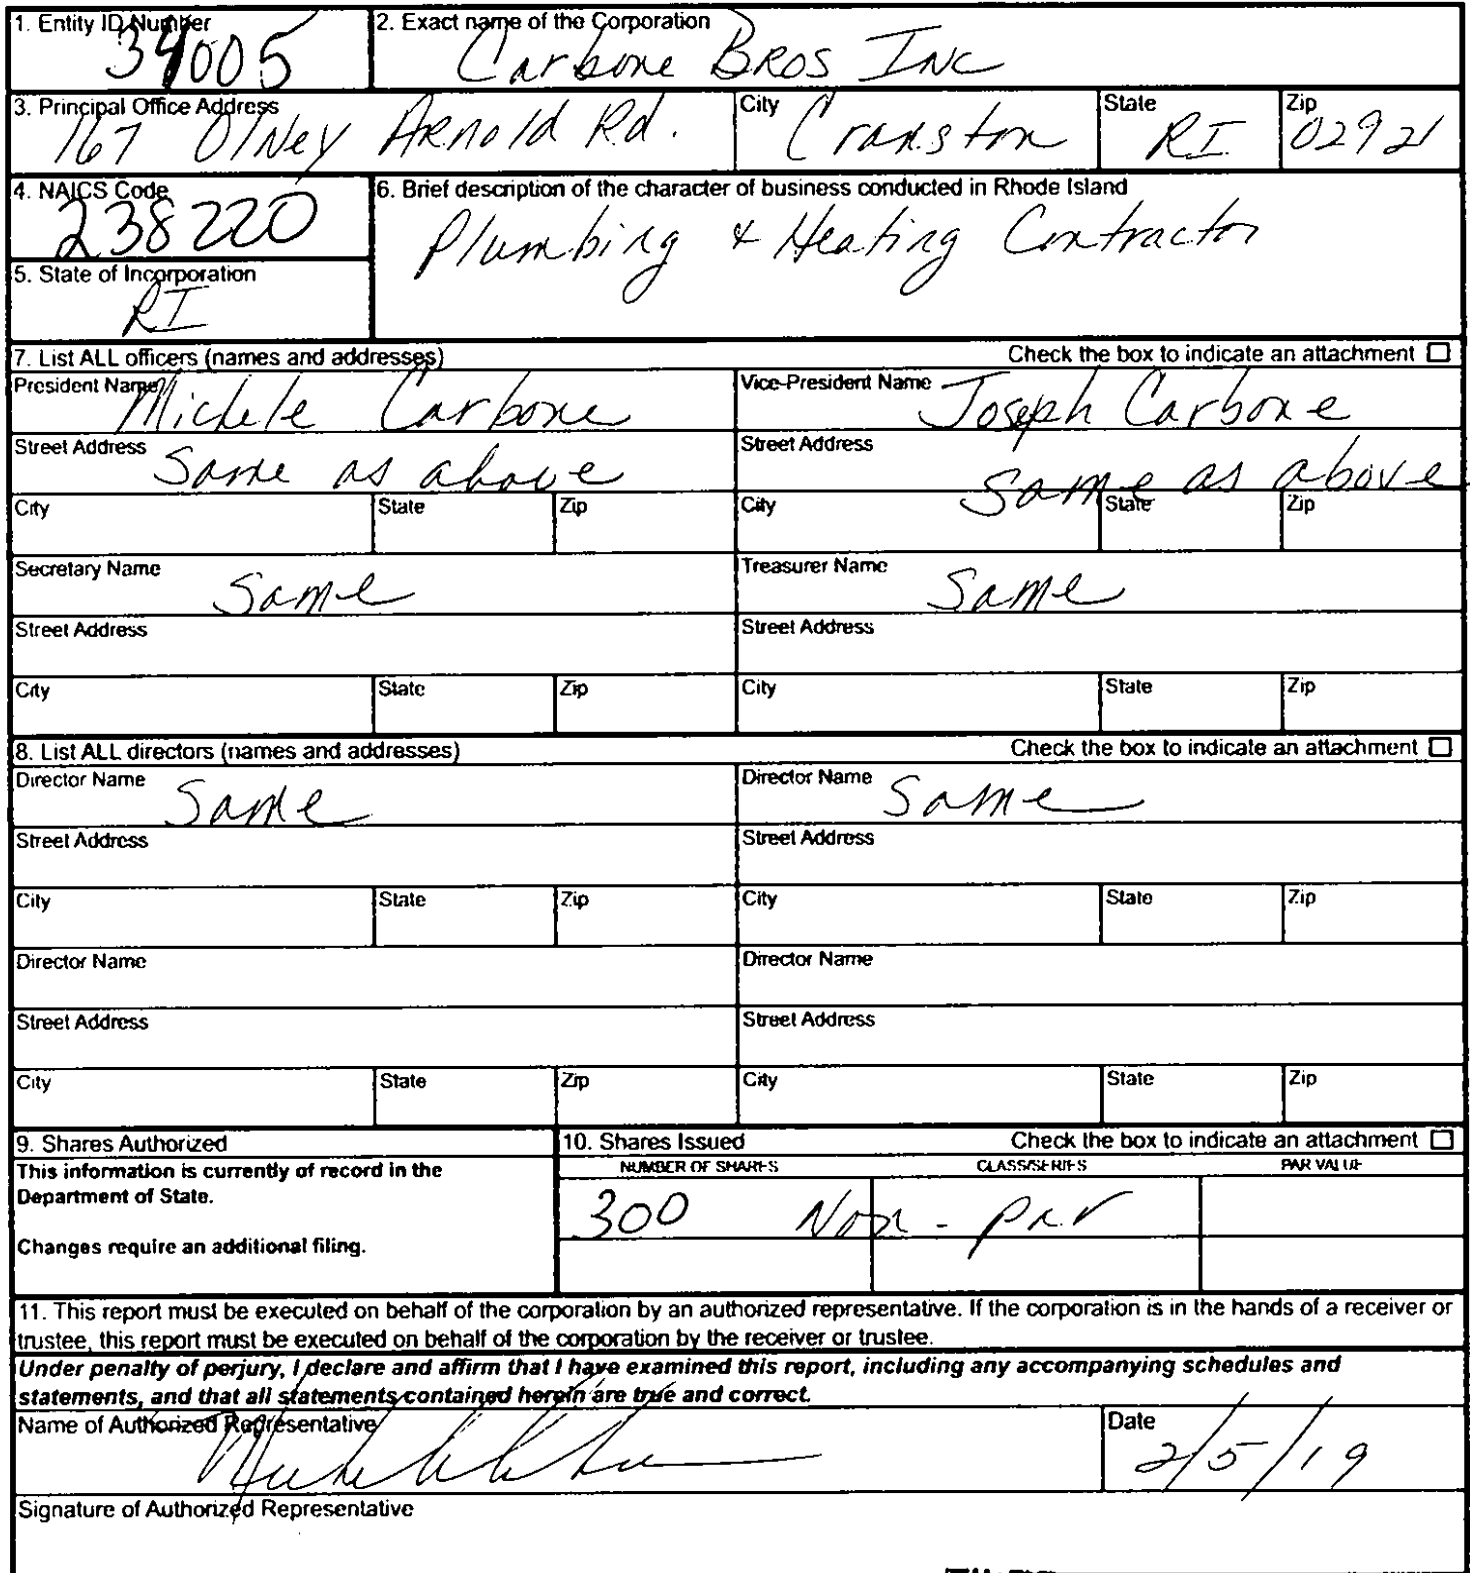 1. Entity ID Number
34005
2. Exact name of the Corporation
Carbone BROS INC
3. Principal Office Address
167 Olney Arnold Rd.
City
Cranston
State
RI
Zip
02921
4. NAICS Code
238220
6. Brief description of the character of business conducted in Rhode Island
Plumbing & Heating Contractor
5. State of Incorporation
RI
7. List ALL officers (names and addresses)
Check the box to indicate an attachment ☐
President Name
Michele Carbone
Vice-President Name
Joseph Carbone
Street Address
Same as above
Street Address
Same as above
City
State
Zip
City
State
Zip
Secretary Name
Same
Treasurer Name
Same
Street Address
Street Address
City
State
Zip
City
State
Zip
8. List ALL directors (names and addresses)
Check the box to indicate an attachment ☐
Director Name
Same
Director Name
Same
Street Address
Street Address
City
State
Zip
City
State
Zip
Director Name
Director Name
Street Address
Street Address
City
State
Zip
City
State
Zip
9. Shares Authorized
This information is currently of record in the
Department of State.
Changes require an additional filing.
10. Shares Issued
Check the box to indicate an attachment ☐
NUMBER OF SHARES
CLASS/SERIES
PAR VALUE
300 Non - par
11. This report must be executed on behalf of the corporation by an authorized representative. If the corporation is in the hands of a receiver or
trustee, this report must be executed on behalf of the corporation by the receiver or trustee.
Under penalty of perjury, I declare and affirm that I have examined this report, including any accompanying schedules and
statements, and that all statements contained herein are true and correct.
Name of Authorized Representative
Date
2/5/19
Signature of Authorized Representative